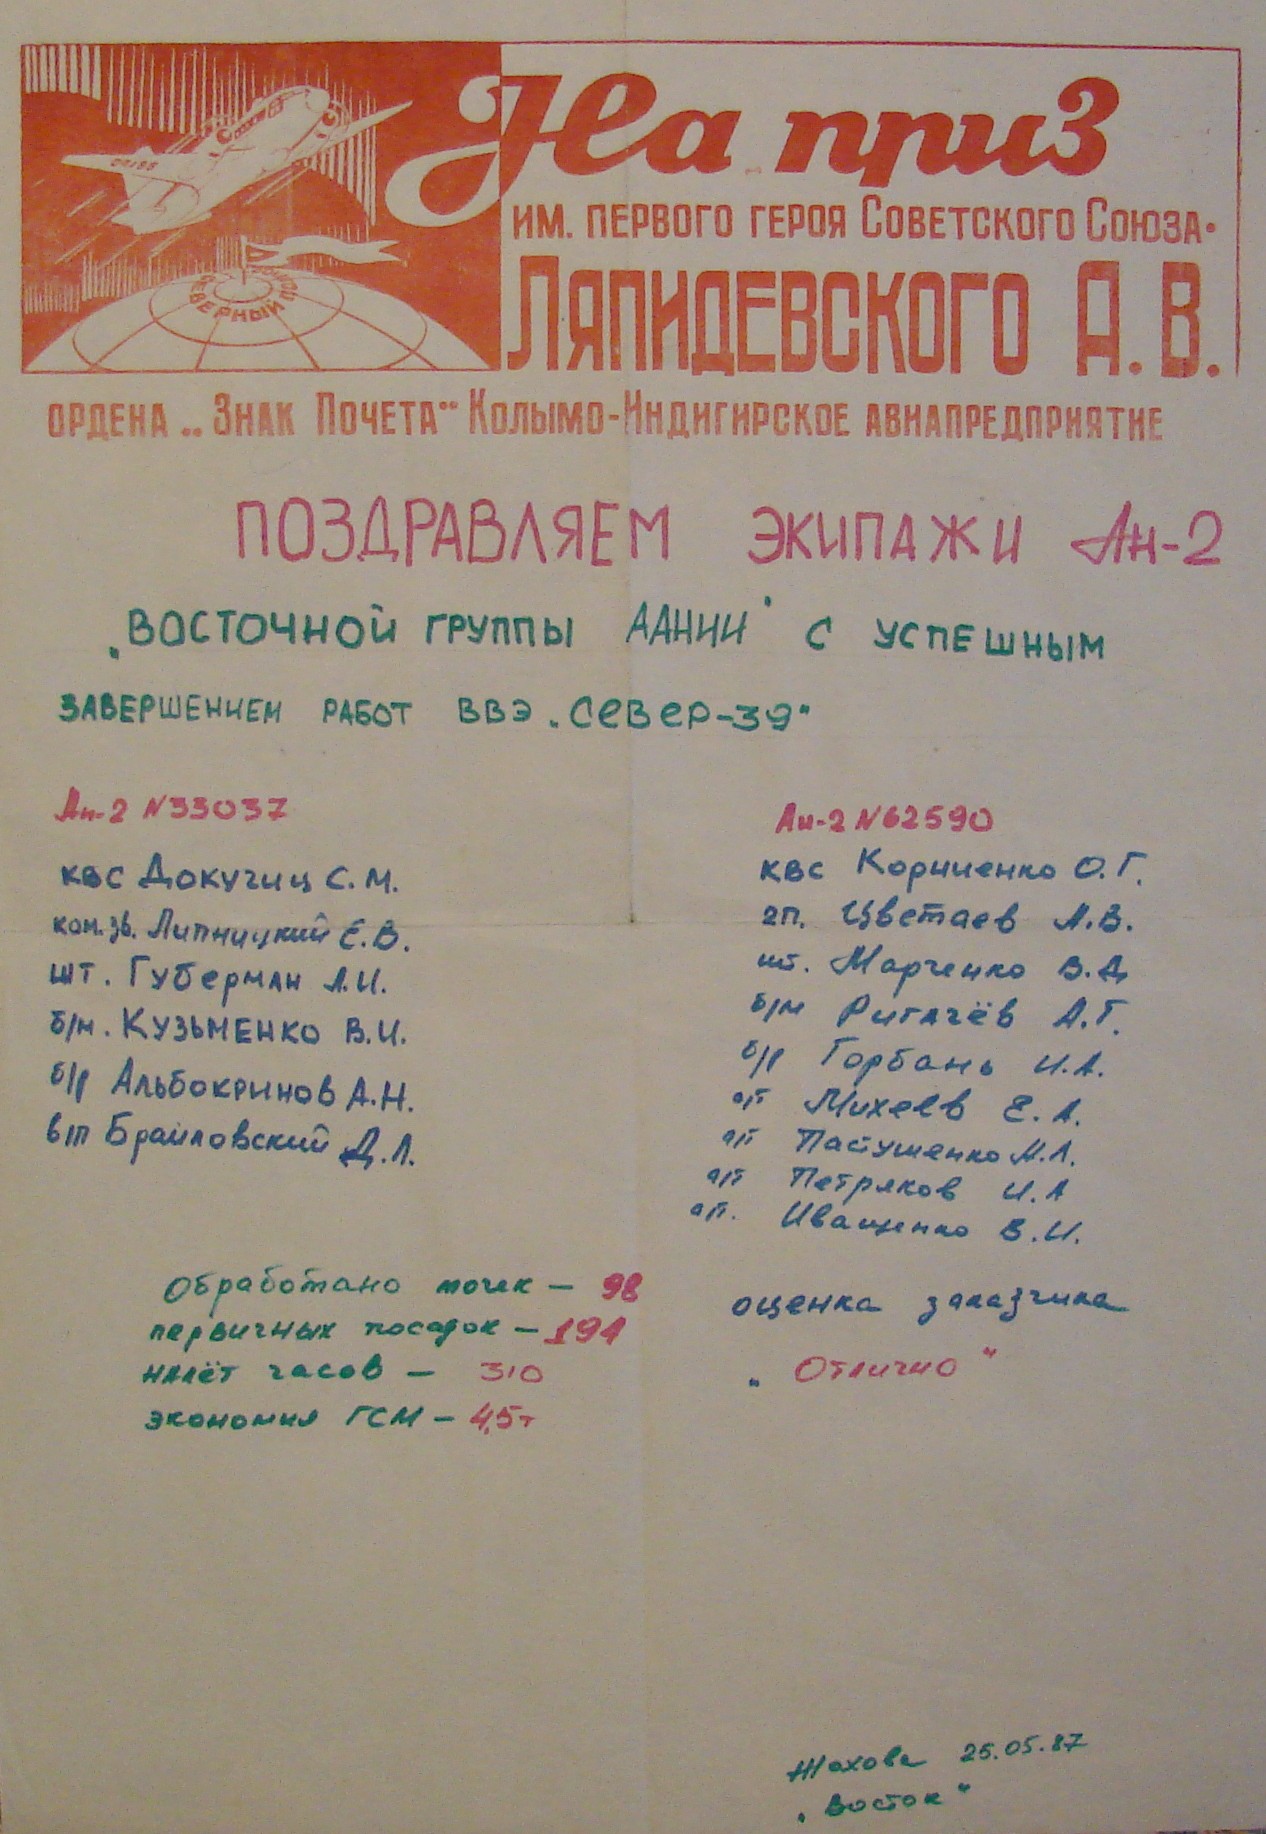 На приз
им. первого героя Советского Союза-
Ляпидевского А. В.
СП-166
СЕВЕРНЫЙ ПОЛЮС
ордена „Знак Почета“ Колымо-Индигирское авиапредприятие
ПОЗДРАВЛЯЕМ ЭКИПАЖИ Ан-2
„ВОСТОЧНОЙ ГРУППЫ ААНИИ“ С УСПЕШНЫМ
ЗАВЕРШЕНИЕМ РАБОТ ВВЭ „СЕВЕР-39“
Ан-2 N33037
КВС Докучиц С.М.
ком.зв. Липницкий Е.В.
шт. Губерман Л.И.
б/м. Кузьменко В.И.
б/р Альбокринов А.Н.
в/п Брайловский Д.Л.
Ан-2 N62590
КВС Корниенко О.Г.
2п. Цветаев А.В.
шт. Марченко В.Д
б/м Ригачёв А.Г.
б/р Горбань И.А.
оп Михеев Е.А.
оп Пастушенко Н.Л.
оп Петряков И.А
оп. Иващенко В.И.
Обработано точек – 98
первичных посадок – 194
налёт часов – 310
экономия ГСМ – 4,5т
оценка заказчика
„Отлично“
Жохова 25.05.87
„Восток“